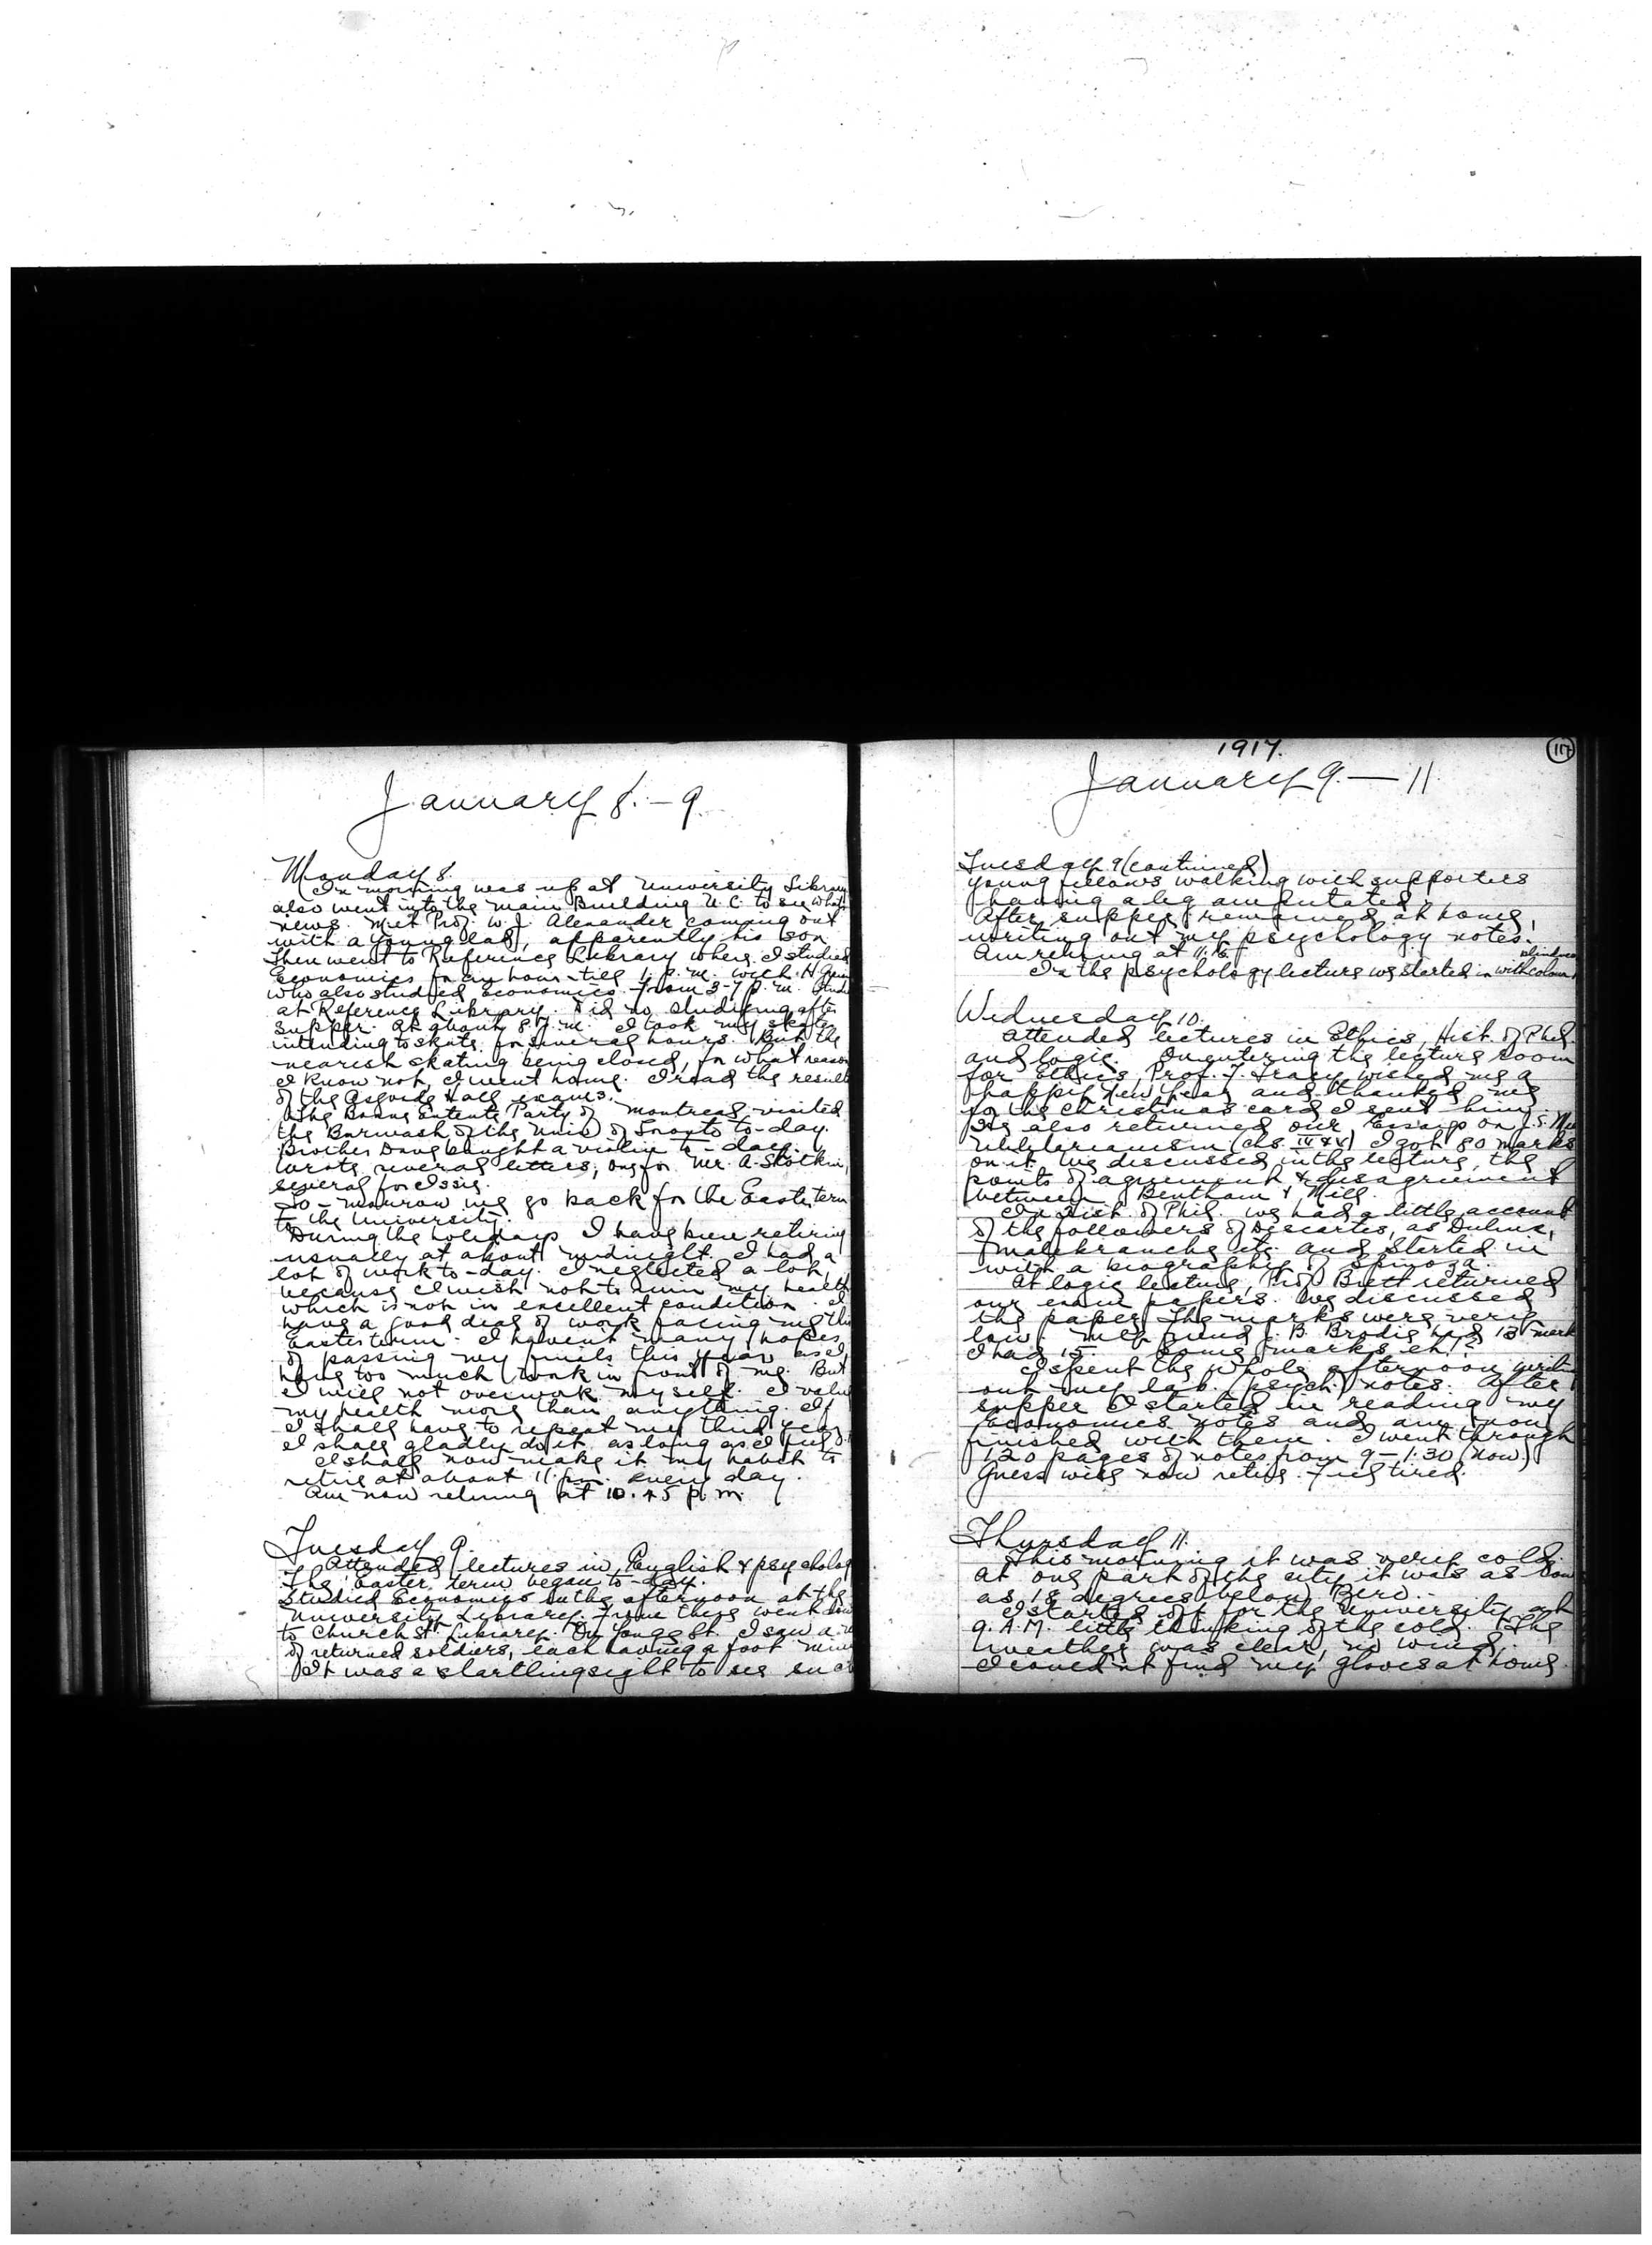 January 8.-9.
Monday 8.
In morning was up at University Library
also went into the main Building U.C. to see what's
news. Met Prof. W. J. Alexander coming out
with a young lad, apparently his son.
Then went to Reference Library where I studied
Economics for an hour - till 1. p.m. with H.
who also studied Economics. From 3-7 p.m.
at Reference Library. Did no studying after
supper. At about 8 p.m. I took my skates
intending to skate for several hours. But the
nearest skating being closed, for what reason
I know not, I went home. I read the results
of the Osgoode Hall exams.
The Bonne Entente Party of Montreal visited
the of the Univ. of Toronto to-day.
Brother Dave bought a violin to-day.
Wrote several letters, one for Mr. A.
several for Issie.
To-morrow we go back for the Easter term
to the University.
During the holidays I have been retiring
usually at about midnight. I had a
lot of work to-day. I neglected a lot,
because I wish not to ruin my health
which is not in excellent condition. I
have a good deal of work facing me this
Easter term. I haven't many hopes
of passing my finals this year as I
have too much work in front of me. But
I will not overwork myself. I value
my health more than anything. If
I shall have to repeat my third year
I shall gladly do it, as long as I feel
I shall now make it my habit to
retire at about 11. p.m. every day.
Am now retiring at 10.45 p.m.
Tuesday 9.
Attended lectures in English & psychology
The Easter term began to-day.
Studied Economics in the afternoon at the
University Library. From there went down
to Church St. Library. On Yonge St. I saw a
of returned soldiers, each having a foot
It was a startling sight to see such
1917.
117
January 9.-11.
Tuesday 9 (continued)
young fellows walking with supporters
having a leg amputated.
After supper remained at home,
writing out my psychology notes.
Am retiring at 11.15.
In the psychology lecture we started in with colour blindness
Wednesday 10.
Attended lectures in Ethics, Hist. of Phil.
and logic. On entering the lecture room
for Ethics, Prof. F. Tracy wished me a
happy New Year and thanked me
for the Christmas card I sent him.
He also returned our Essays on J.S. Mill
Utilitarianism (chs. IV & V) I got 80 marks
on it. We discussed in the lecture, the
points of agreement & disagreement
between Bentham & Mill.
In Hist. of Phil. we had a little account
of the followers of Descartes, as
Malebranche etc. and started in
with a biography of Spinoza.
At logic lecture, Prof. Brett returned
our exam papers. We discussed
the paper. The marks were very
low. My friend J. B. Brodie had 13 marks
I had 15. Some marks eh!?
I spent the whole afternoon writing
out my lab. psych. notes. After
supper I started in reading my
Economics notes and am now
finished with them. I went through
120 pages of notes from 9-1:30 (now.)
Guess will now retire. Feel tired.
Thursday 11.
This morning it was very cold.
At one part of the city it was as low
as 18 degrees below Zero.
I started off for the University at
9. A.M. little thinking of the cold. The
weather was clear, no wind,
I couldn't find my gloves at home.